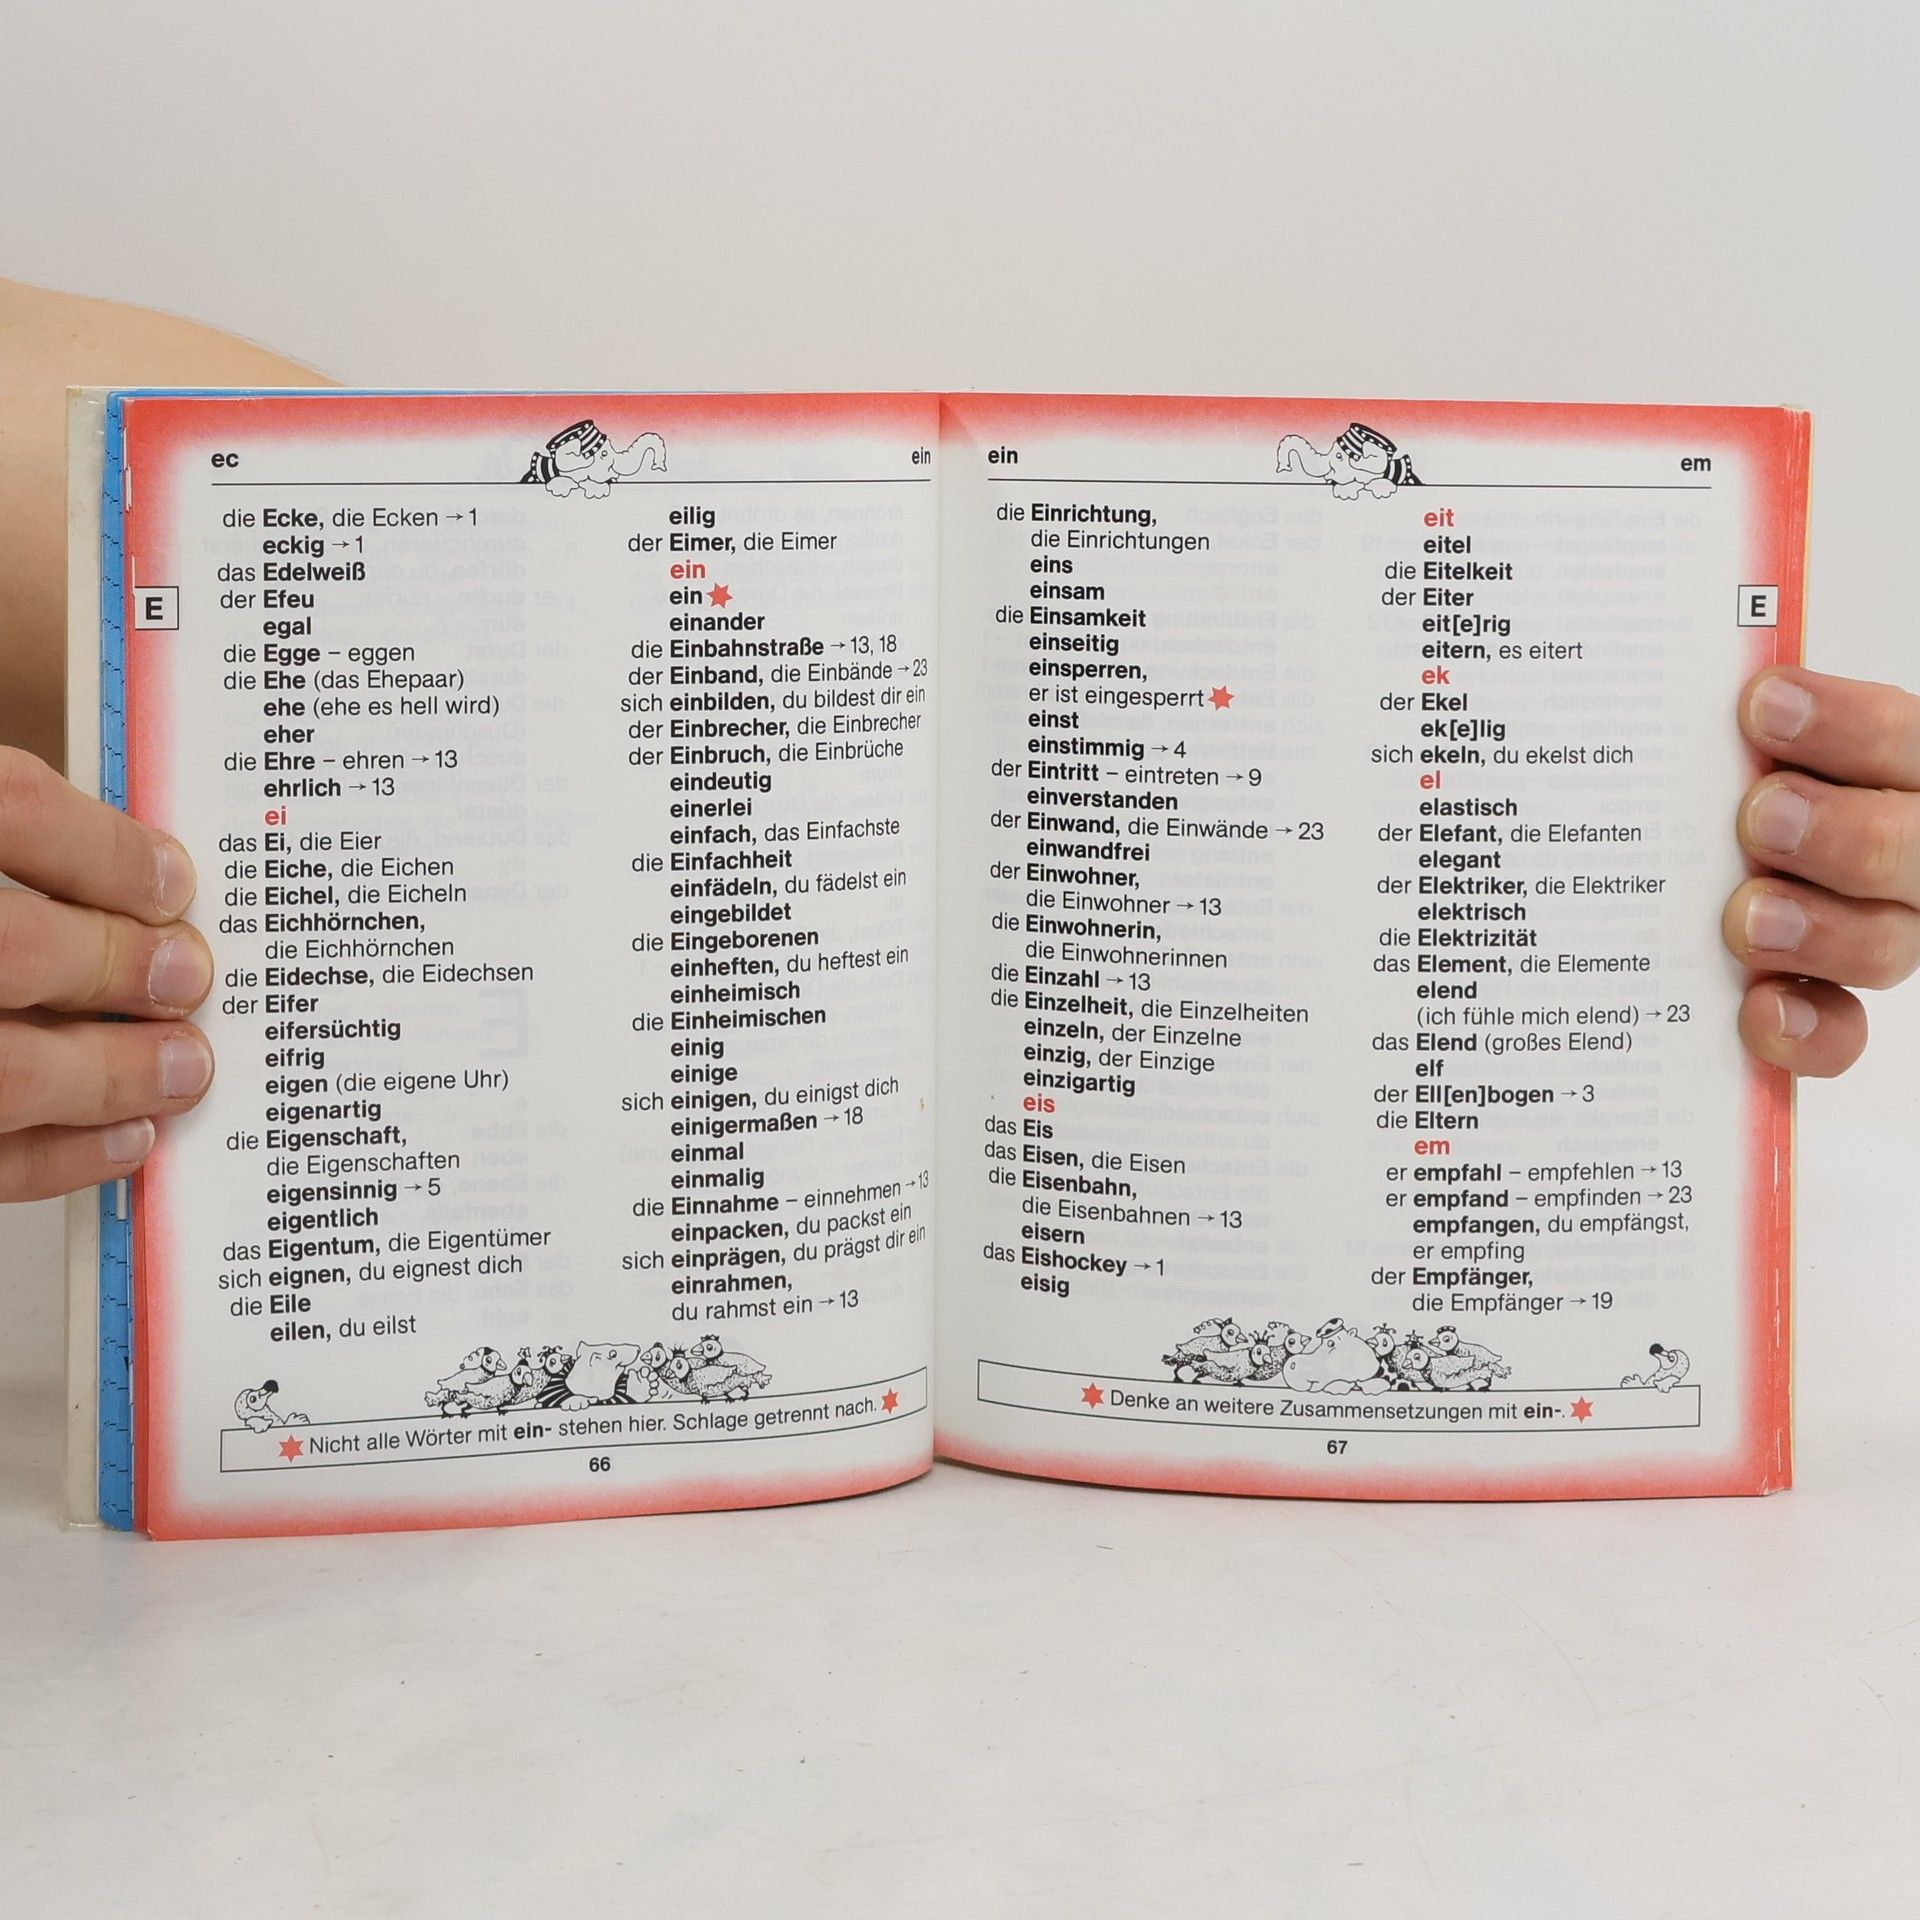 ec
ein
E
die Ecke, die Ecken → 1
eckig → 1
das Edelweiß
der Efeu
egal
die Egge – eggen
die Ehe (das Ehepaar)
ehe (ehe es hell wird)
eher
die Ehre – ehren → 13
ehrlich → 13
ei
das Ei, die Eier
die Eiche, die Eichen
die Eichel, die Eicheln
das Eichhörnchen,
die Eichhörnchen
die Eidechse, die Eidechsen
der Eifer
eifersüchtig
eifrig
eigen (die eigene Uhr)
eigenartig
die Eigenschaft,
die Eigenschaften
eigensinnig → 5
eigentlich
das Eigentum, die Eigentümer
sich eignen, du eignest dich
die Eile
eilen, du eilst
eilig
der Eimer, die Eimer
ein
ein
einander
die Einbahnstraße → 13, 18
der Einband, die Einbände → 23
sich einbilden, du bildest dir ein
der Einbrecher, die Einbrecher
der Einbruch, die Einbrüche
eindeutig
einerlei
einfach, das Einfachste
die Einfachheit
einfädeln, du fädelst ein
eingebildet
die Eingeborenen
einheften, du heftest ein
einheimisch
die Einheimischen
einig
einige
sich einigen, du einigst dich
einigermaßen → 18
einmal
einmalig
die Einnahme – einnehmen → 13
einpacken, du packst ein
sich einprägen, du prägst dir ein
einrahmen,
du rahmst ein → 13
Nicht alle Wörter mit ein- stehen hier. Schlage getrennt nach.
66
ein
em
E
die Einrichtung,
die Einrichtungen
eins
einsam
die Einsamkeit
einseitig
einsperren,
er ist eingesperrt
einst
einstimmig → 4
der Eintritt – eintreten → 9
einverstanden
der Einwand, die Einwände → 23
einwandfrei
der Einwohner,
die Einwohner → 13
die Einwohnerin,
die Einwohnerinnen
die Einzahl → 13
die Einzelheit, die Einzelheiten
einzeln, der Einzelne
einzig, der Einzige
einzigartig
eis
das Eis
das Eisen, die Eisen
die Eisenbahn,
die Eisenbahnen → 13
eisern
das Eishockey → 1
eisig
eit
eitel
die Eitelkeit
der Eiter
eit[e]rig
eitern, es eitert
ek
der Ekel
ek[e]lig
sich ekeln, du ekelst dich
el
elastisch
der Elefant, die Elefanten
elegant
der Elektriker, die Elektriker
elektrisch
die Elektrizität
das Element, die Elemente
elend
(ich fühle mich elend) → 23
das Elend (großes Elend)
elf
der Ell[en]bogen → 3
die Eltern
em
er empfahl – empfehlen → 13
er empfand – empfinden → 23
empfangen, du empfängst,
er empfing
der Empfänger,
die Empfänger → 19
Denke an weitere Zusammensetzungen mit ein-.
67